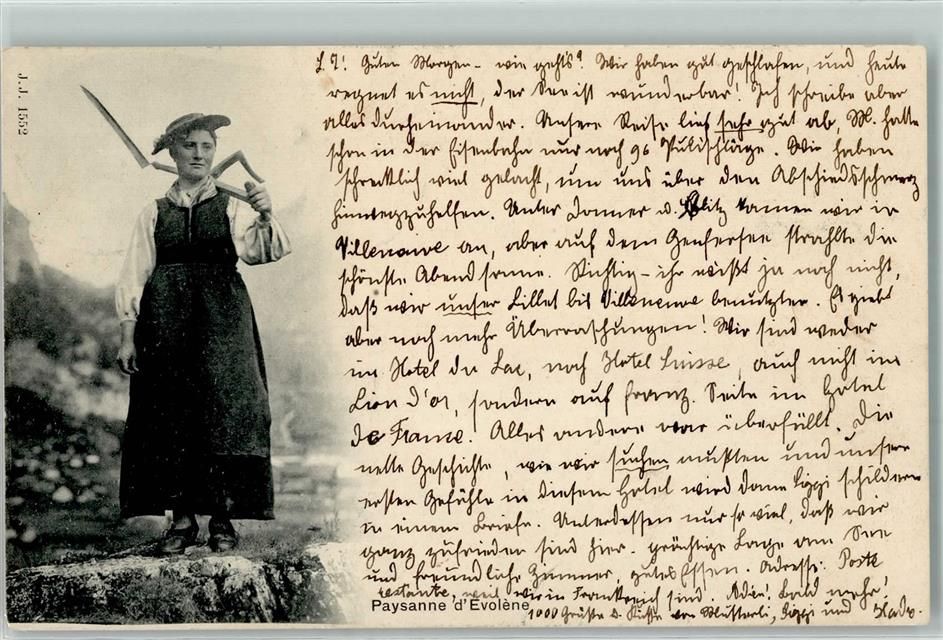 J. J. 1552
L. T.! Guten Morgen - wie geht's? Wir haben gut geschlafen, und heute
regnet es nicht, der See ist wunderbar! Ich schreibe aber
alles durcheinander. Unsere Reise lief sehr gut ab, M. hatte
schon in der Eisenbahn nur noch 96 Pulsschläge. Wir haben
schrecklich viel gelacht, um uns über den Abschiedsschmerz
hinwegzuhelfen. Unter Donner u. Blitz kamen wir in
Villeneuve an, aber auf dem Genfersee strahlte die
schönste Abendsonne. Richtig - ihr wißt ja noch nicht,
daß wir unser Billet bis Villeneuve benutzten. Es giebt
aber noch mehr Überraschungen! Wir sind weder
im Hotel du Lac, noch Hotel Suisse, auch nicht im
Lion d'or, sondern auf franz. Seite im Hotel
de France. Alles andere war überfüllt. Die
nette Geschichte, wie wir suchen mußten und unsere
ersten Gefühle in diesem Hotel wird dann schildern
in einem Briefe. Unterdessen nur so viel, daß wir
ganz zufrieden sind hier. Lage am See
und freundliche Zimmer, gutes Essen. Adresse: Poste
restante, weil wir in Frankreich sind! Adieu! Bald mehr!
1000 Grüße u. Küsse von und
Paysanne d'Evolène